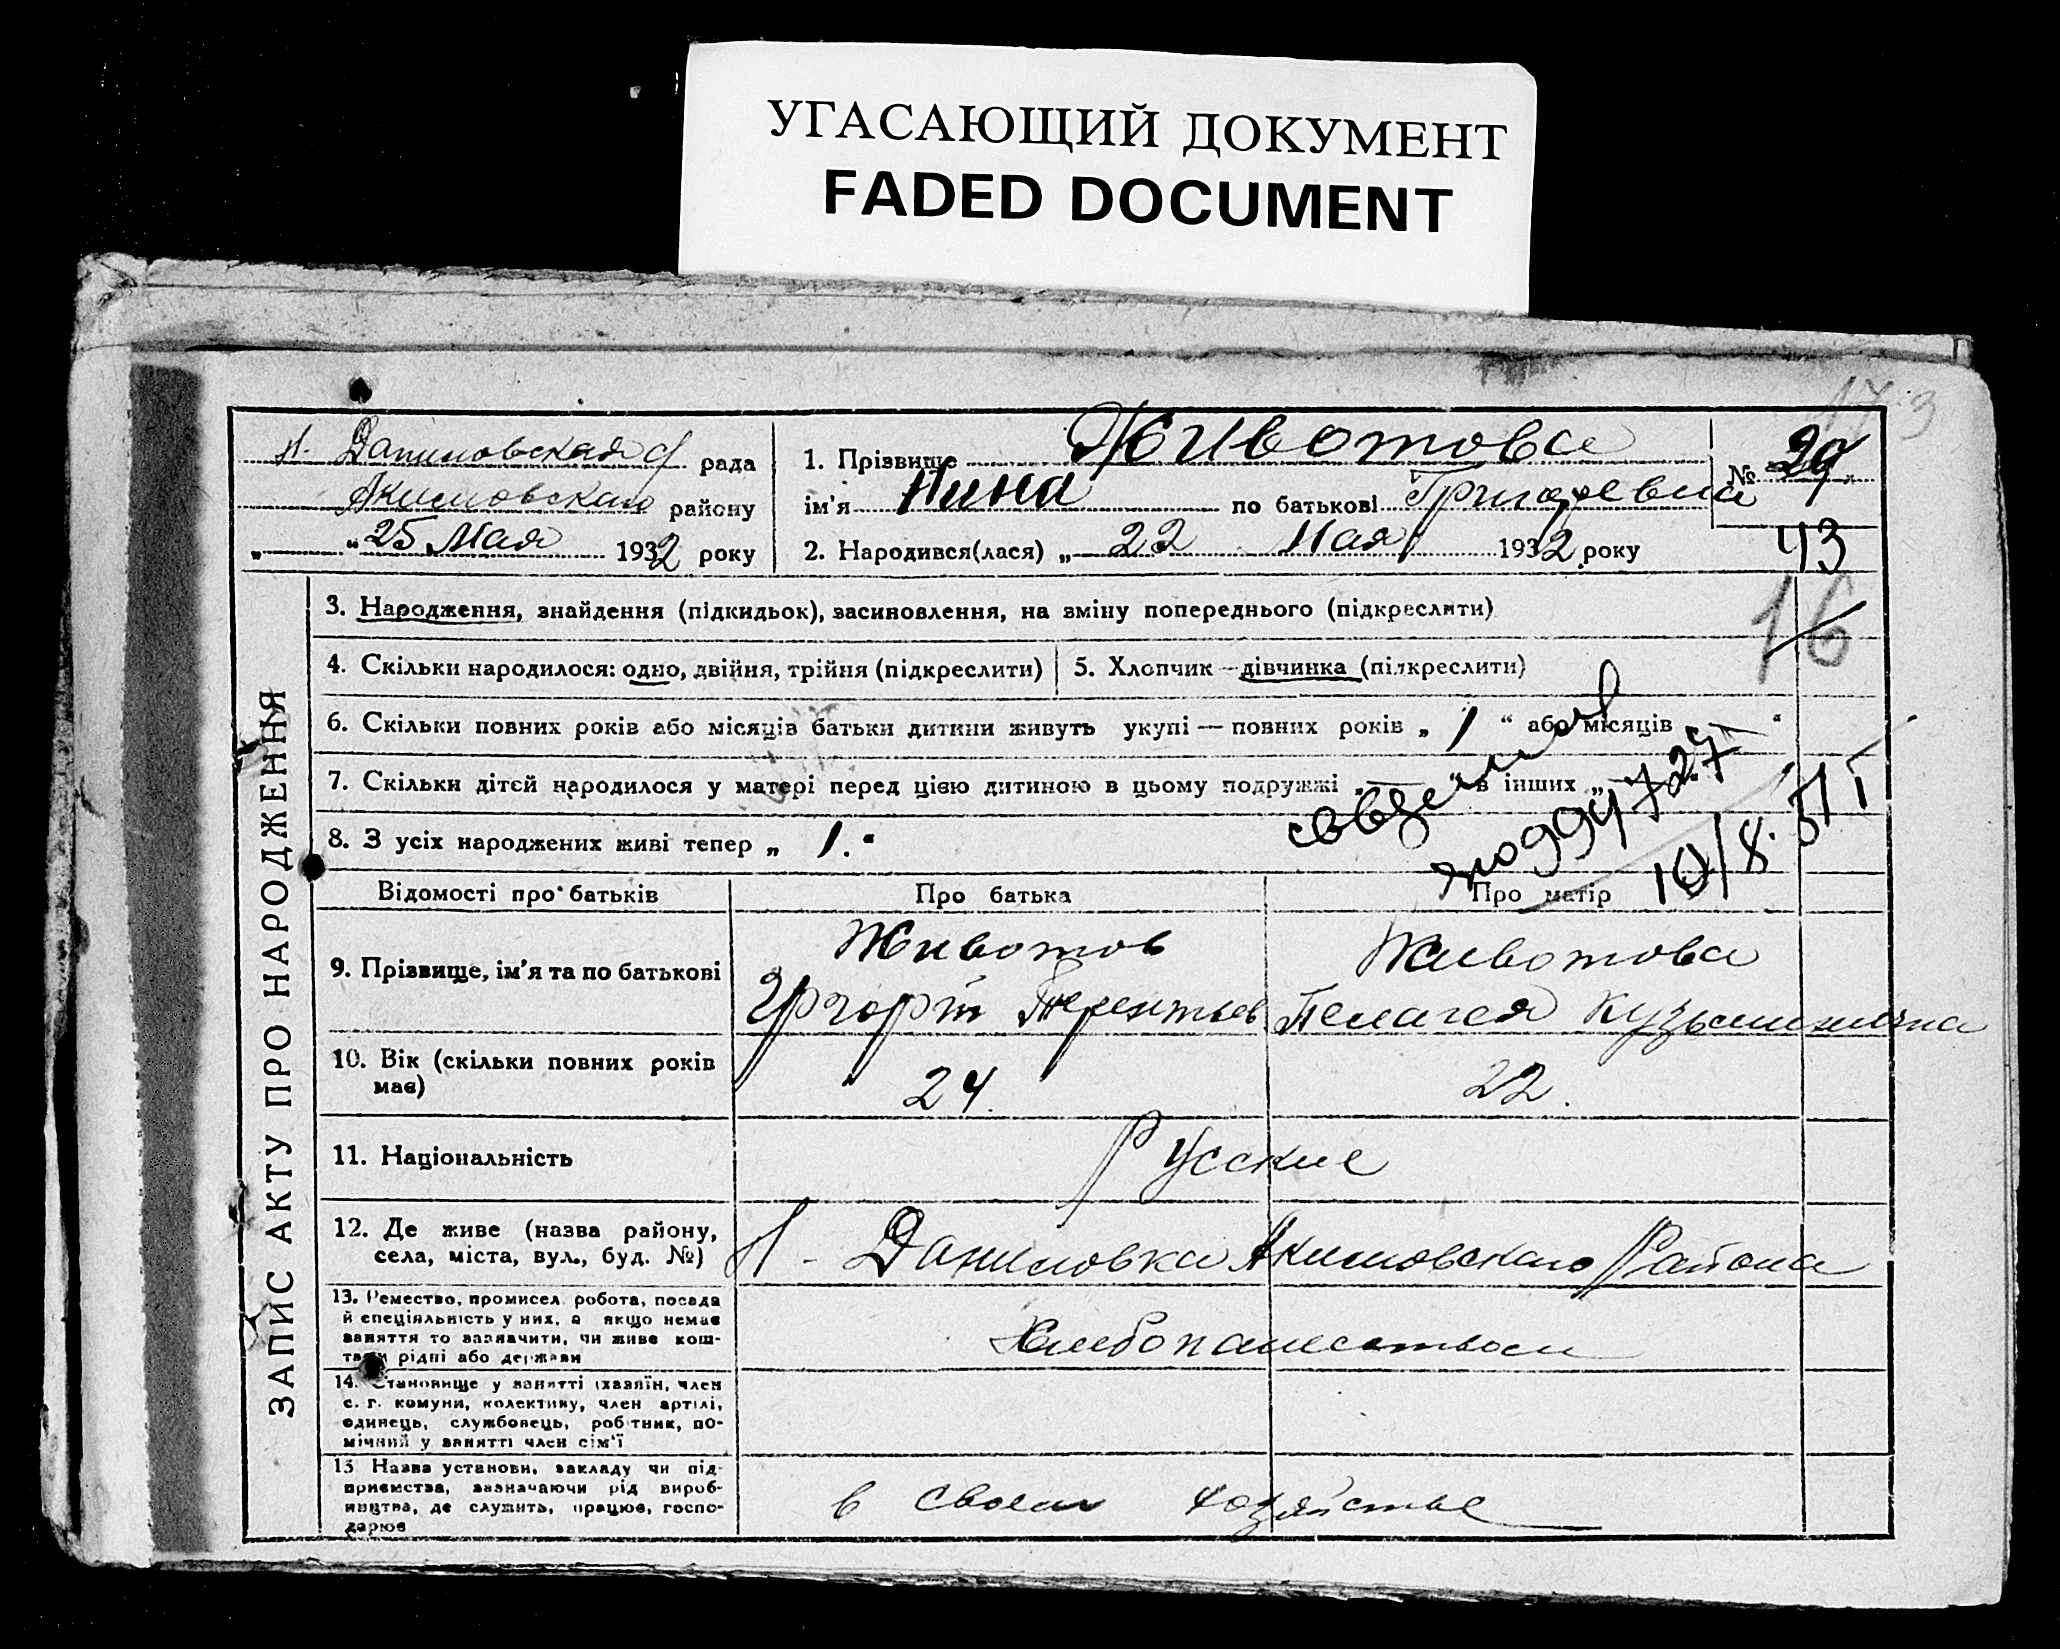 УГАСАЮЩИЙ ДОКУМЕНТ
FADED DOCUMENT
Н. Даниловская с/ рада
Акимовского району
„ “ 25 Мая 1932 року
1. Прізвище Животова
ім'я Нина по батькові Григорьевна
2. Народився(лася) „ 22 Мая 1932 року
№ 29
43
16
ЗАПИС АКТУ ПРО НАРОДЖЕННЯ
3. Народження, знайдення (підкидьок), засиновлення, на зміну попереднього (підкреслити)
4. Скільки народилося: одно, двійня, трійня (підкреслити)
5. Хлопчик — дівчинка (підкреслити)
6. Скільки повних років або місяців батьки дитини живуть укупі — повних років „ 1 “ або місяців “
7. Скільки дітей народилося у матері перед цією дитиною в цьому подружжі „ — “ в інших „ — “
8. З усіх народжених живі тепер „ 1. “
10/8. 51 г
Відомості про батьків
Про батька
Про матір
9. Прізвище, ім'я та по батькові
Животов
Григорій Терентьев
Животова
Пелагея Кузьминична
10. Вік (скільки повних років має)
24.
22.
11. Національність
Русские
12. Де живе (назва району, села, міста, вул., буд. №)
Н - Даниловка Акимовского Района
13. Ремество, промисел, робота, посада
й спеціяльність у них, а якщо немає
заняття то зазначити, чи живе кош-
тами рідні або держави
Хлебопашеством
14. Становище у занятті (хазяїн, член
с. г. комуни, колективу, член артілі,
одинець, службовець, робітник, по-
мічний у занятті член сім'ї
15 Назва установи, закладу чи під-
приємства, зазначаючи рід вироб-
ництва, де служить, працює, госпо-
дарює
в своем хозяйстве